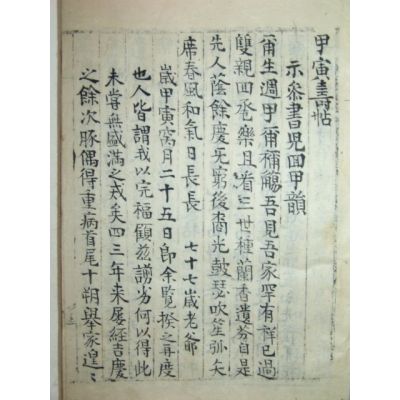 甲寅壽帖
示參書兒回甲韻
爾生週甲爾稱觴吾見吾家罕有祥已過
雙親回巹樂且看三世種蘭香遺芬自是
先人蔭餘慶无窮後裔光鼓瑟吹笙弧矢
席春風和氣日長長　七十七歲老爺
歲甲寅窩月二十五日卽余覽揆之再度
也人皆謂我以完福顧玆謭劣何以得此
未嘗無盛滿之戒矣四三年來屢經吉慶
之餘次豚偶得重病首尾十朔擧家遑〻